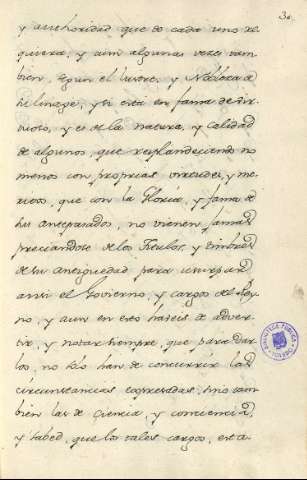 30.
y authoridad que de cada uno se
quiera, y aun algunas vezes tam
bien, segun el lustre, y Nobleza de
su linage, y si está en fama de vir
tuoso, y es de la natura, y calidad
de algunos, que resplandeciendo no
menos con proprias virtudes, y me
ritos, que con la Gloria, y fama de
sus antepasados, no vienen
preciandose de los titulos, y timbres
de su antiguedad para usurpar
assi el Govierno, y cargos del Rey
no, y aun en esto haveis de adver
tir, y notar siempre, que para dar
los, no solo han de concurrir las
circunstancias expresadas, sino tam
bien las de ciencia, y conciencia,
y sabed, que los tales cargos, esta
BIBLIOTECA PUBLICA
TOLEDO